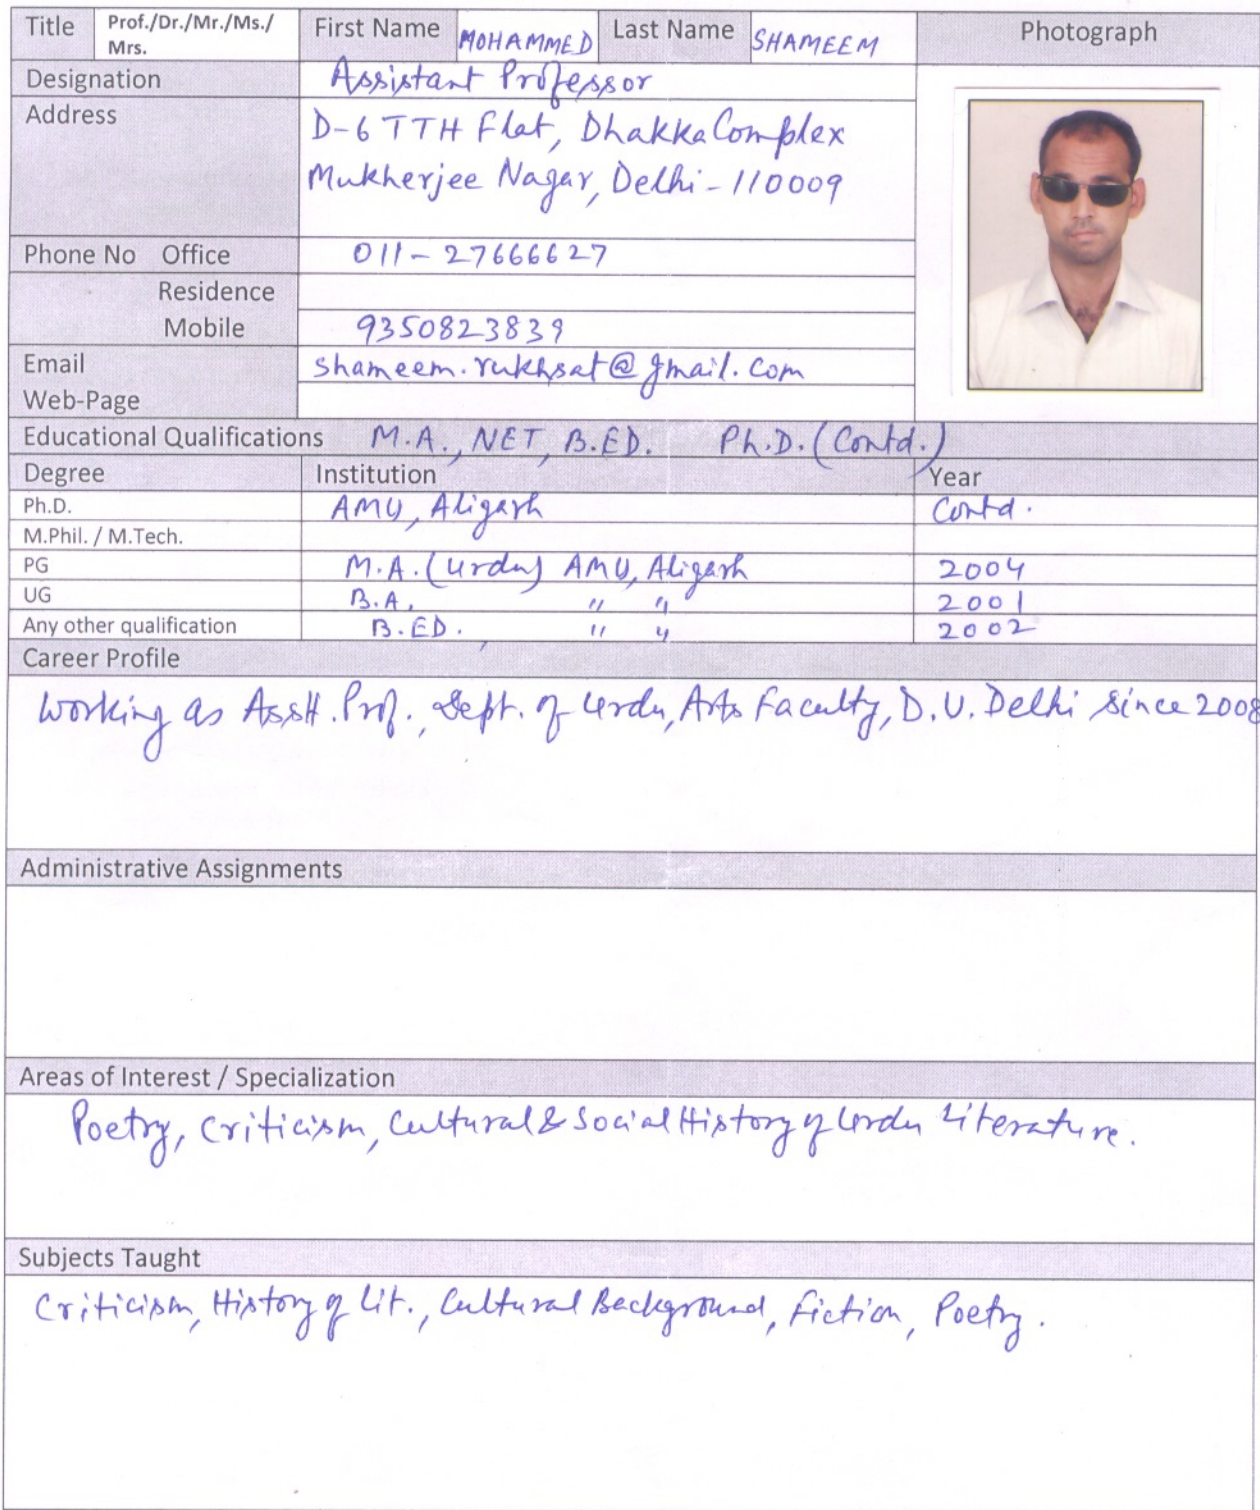 Title Prof./Dr./Mr./Ms./ First Name MOHAMMED Last Name SHAMEEM Photograph
Mrs.
Designation Assistant Professor
Address D-6 TTH Flat, Dhakka Complex
Mukherjee Nagar, Delhi - 110009
Phone No Office 011 - 27666627
Residence
Mobile 9350823839
Email shameem.rukhsat@gmail.com
Web-Page
Educational Qualifications M.A., NET, B.ED. Ph.D. (Contd.)
Degree Institution Year
Ph.D. AMU, Aligarh Contd.
M.Phil. / M.Tech.
PG M.A. (Urdu) AMU, Aligarh 2004
UG B.A, " " 2001
Any other qualification B.ED. " " 2002
Career Profile
Working as Asstt. Prof., Dept. of Urdu, Arts Faculty, D.U. Delhi since 2008
Administrative Assignments
Areas of Interest / Specialization
Poetry, Criticism, Cultural & Social History of Urdu Literature.
Subjects Taught
Criticism, History of Lit., Cultural Background, Fiction, Poetry.